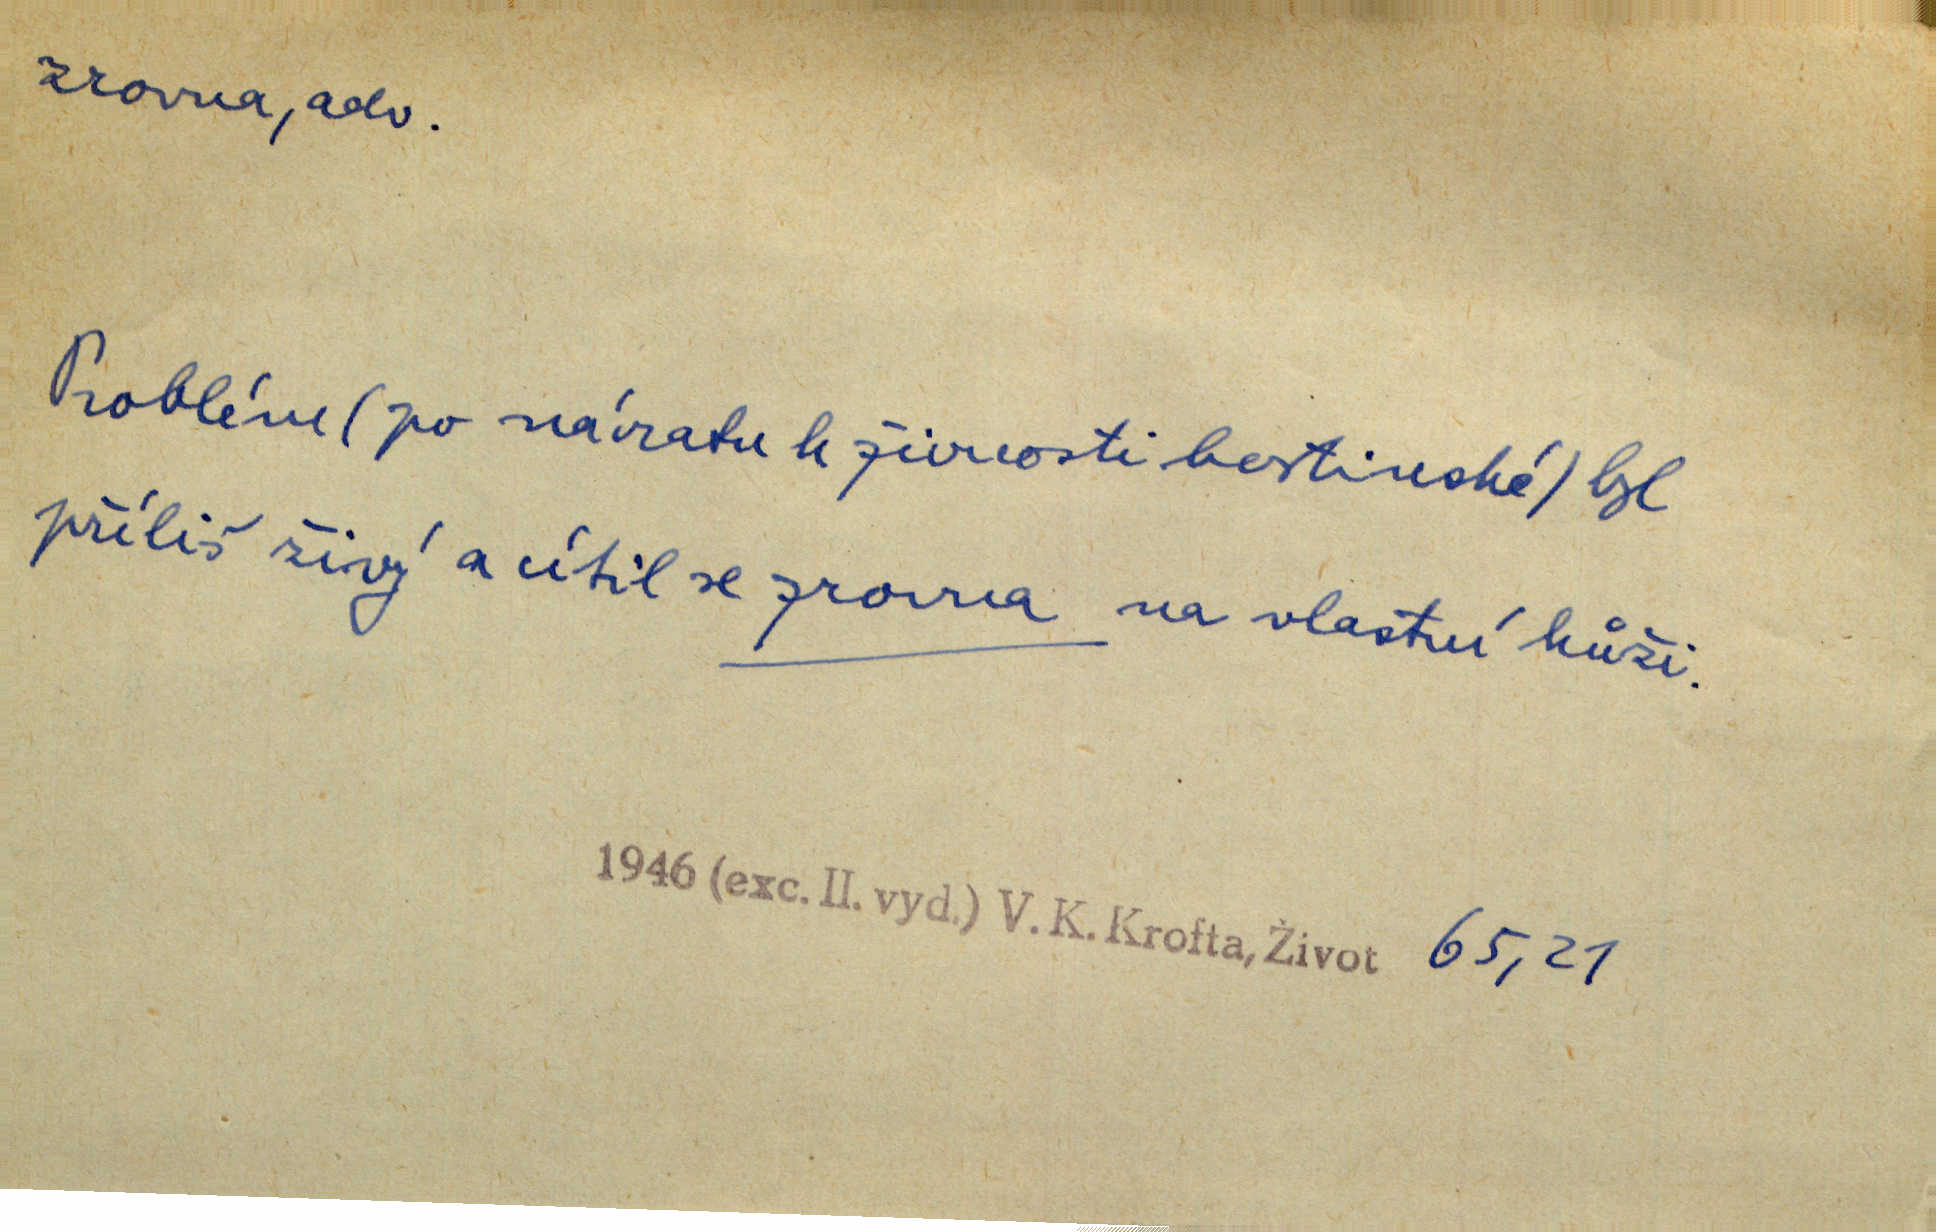 zrovna, adv.
Problém (po návratu k živnosti hostinské) byl
příliš živý a cítil se zrovna na vlastní kůži.
1946 (exc. II. vyd.) V. K. Krofta, Život 65,21